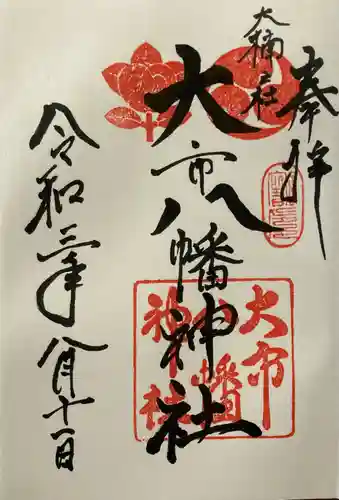 奉拝
大楠社
大市八幡神社
大市
八幡
神社
令和三年
八月十一日